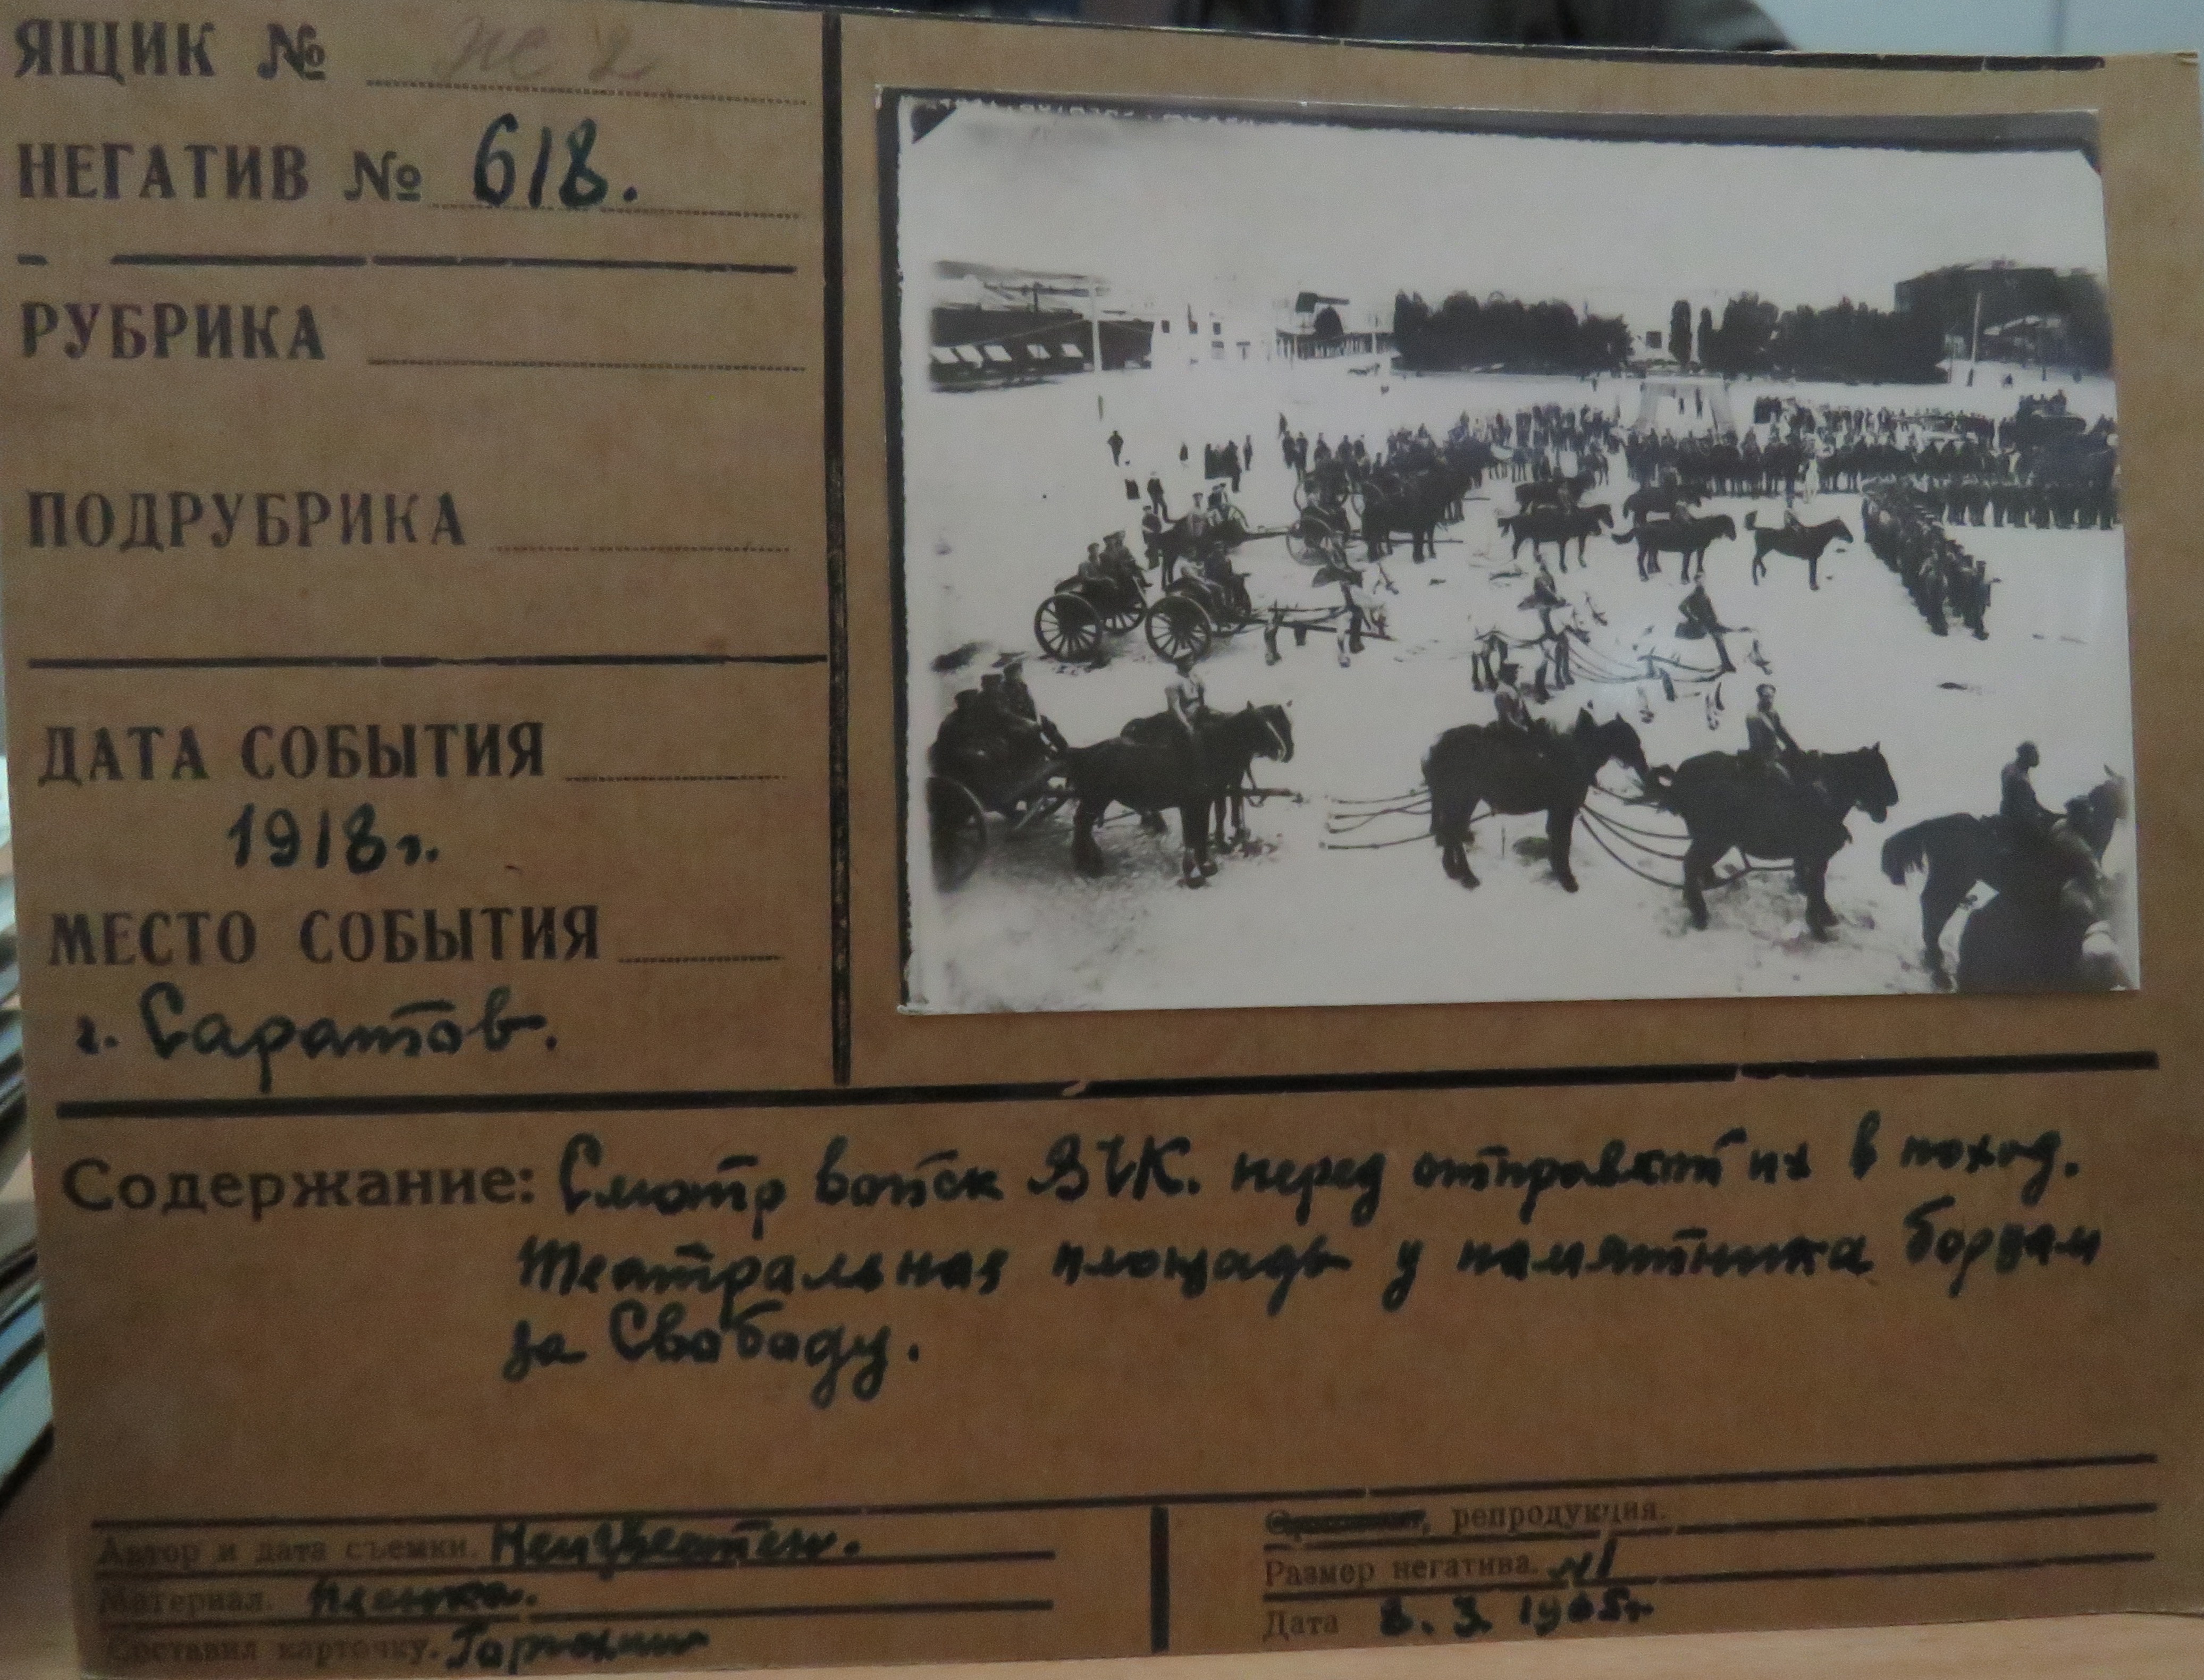 ЯЩИК №
НЕГАТИВ № 618.
РУБРИКА
ПОДРУБРИКА
ДАТА СОБЫТИЯ
1918г.
МЕСТО СОБЫТИЯ
г. Саратов.
Содержание: Смотр войск ВЧК. перед их в поход.
Театральная площадь у памятника борцам
за Свободу.
Автор и дата съемки. Неизвестен.
Материал. пленка.
Составил карточку.
репродукция.
Размер негатива.
Дата 8. 3. 1965г.